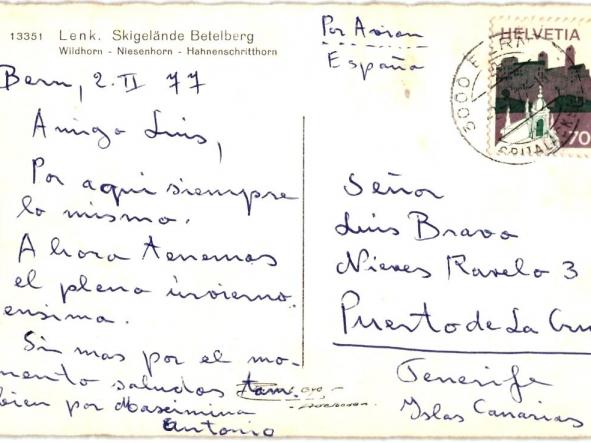 13351 Lenk. Skigelände Betelberg
Wildhorn - Niesenhorn - Hahnenschritthorn
Bern, 2. II 77
Amigo Luis,
Por aqui siempre
lo mismo.
Ahora tenemos
el pleno invierno
ensima.
Sin mas por el mo-
mento saludos tam-
bien por Maximina
Antonio
Por Avion
España
HELVETIA
70
3000 BERN
SPITALACKER
Señor
Luis Bravo
Nieves Ravelo 3
Puerto de La Cru
Tenerife
Yslas Canarias